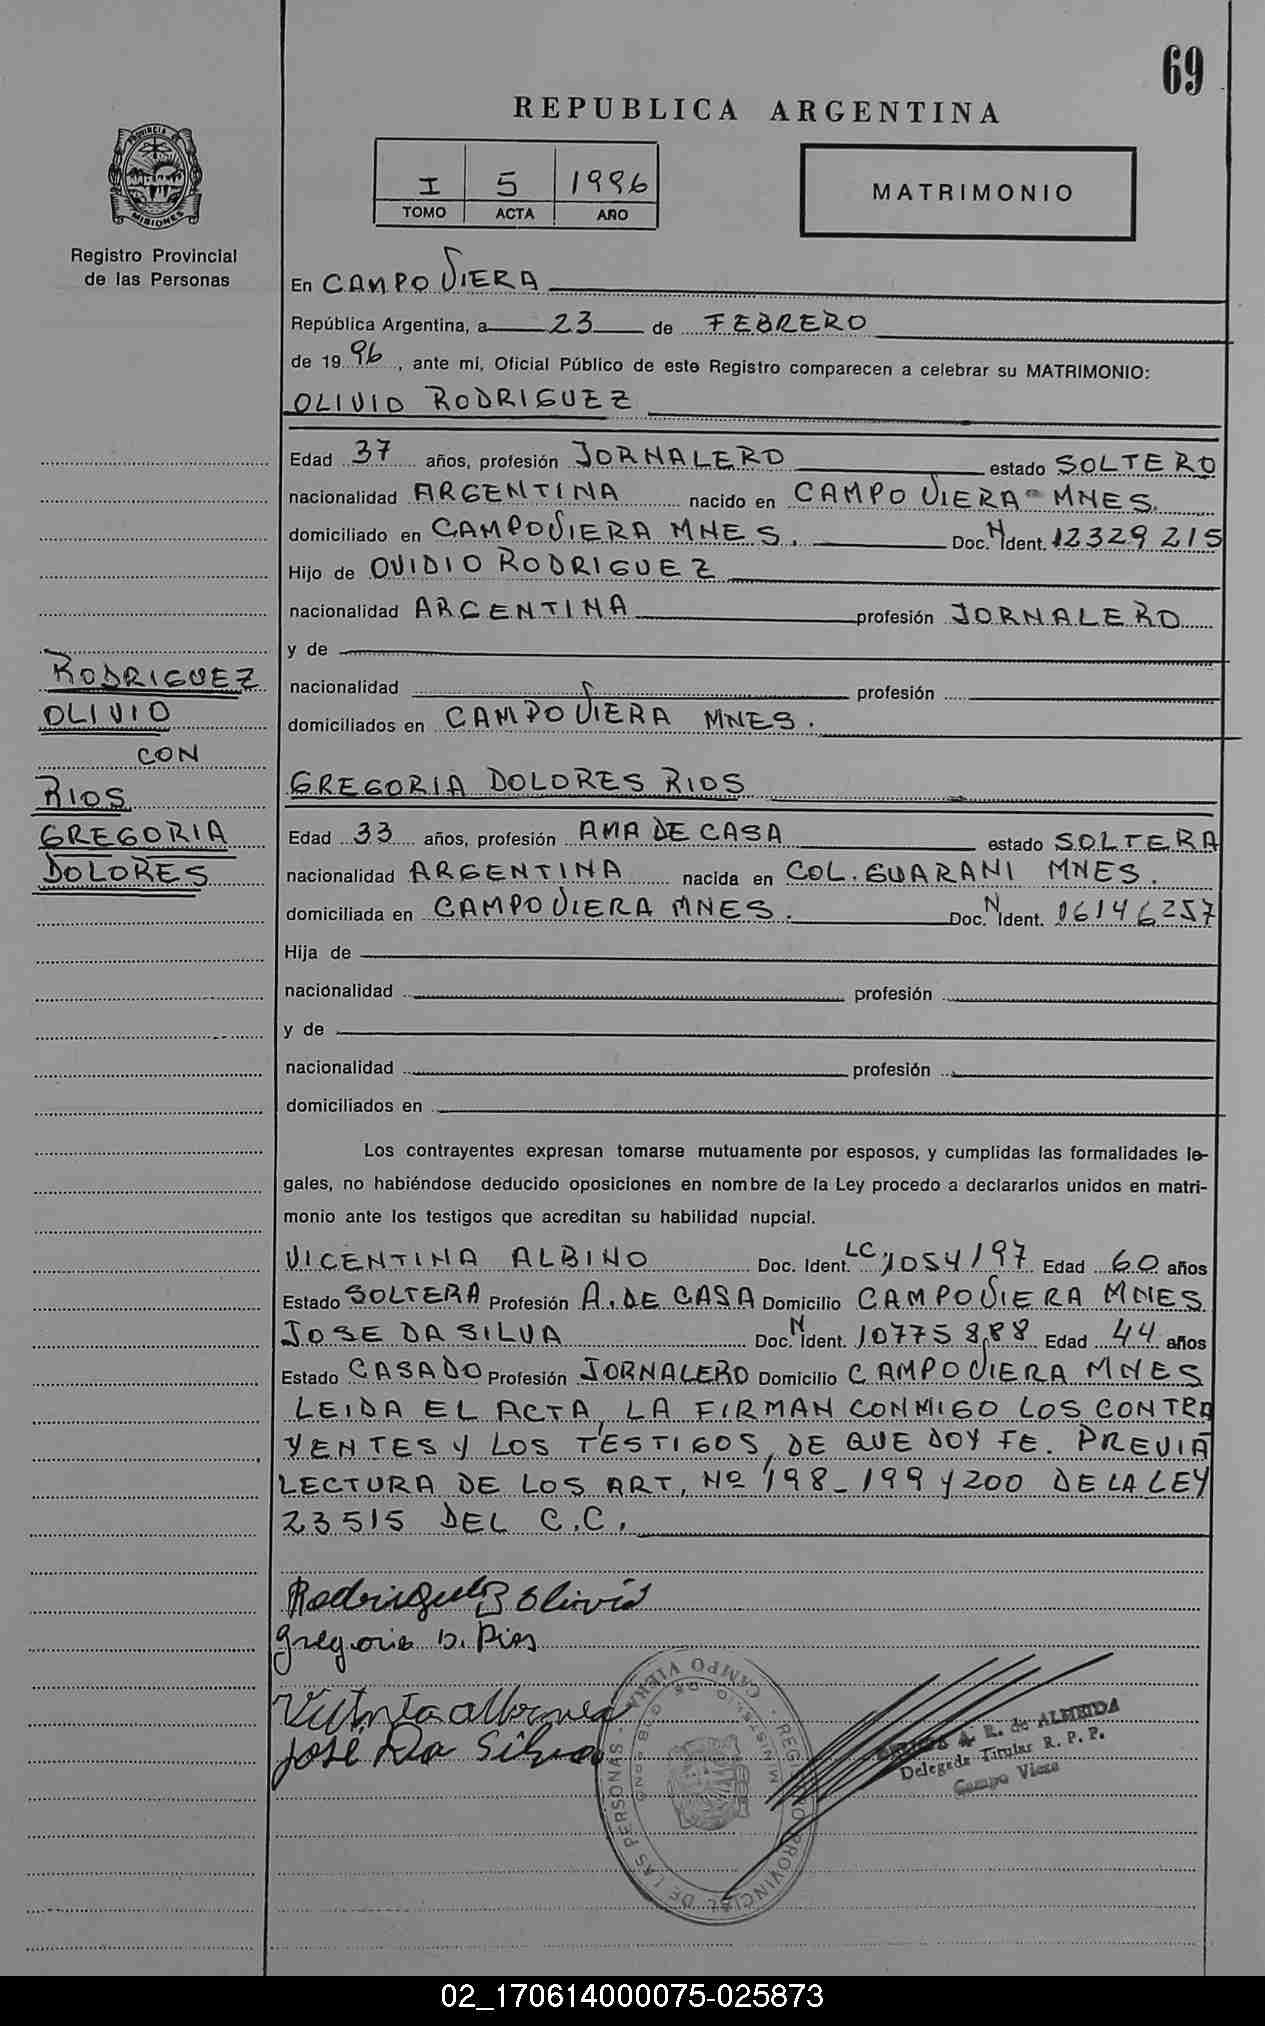 69
REPUBLICA ARGENTINA
I 5 1996
TOMO ACTA AÑO
MATRIMONIO
PROVINCIA DE MISIONES
Registro Provincial
de las Personas
En CAMPO VIERA
República Argentina, a 23 de FEBRERO
de 19 96, ante mi, Oficial Público de este Registro comparecen a celebrar su MATRIMONIO:
OLIVIO RODRIGUEZ
Edad 37 años, profesión JORNALERO estado SOLTERO
nacionalidad ARGENTINA nacido en CAMPO VIERA - MNES.
domiciliado en CAMPO VIERA MNES. Doc. N Ident. 12329215
Hijo de OVIDIO RODRIGUEZ
nacionalidad ARGENTINA profesión JORNALERO
y de
nacionalidad profesión
domiciliados en CAMPO VIERA MNES.
RODRIGUEZ
OLIVIO
CON
RIOS
GREGORIA
DOLORES
GREGORIA DOLORES RIOS
Edad 33 años, profesión AMA DE CASA estado SOLTERA
nacionalidad ARGENTINA nacida en COL. GUARANI MNES.
domiciliada en CAMPO VIERA MNES. Doc. N Ident. 16146257
Hija de
nacionalidad profesión
y de
nacionalidad profesión
domiciliados en
Los contrayentes expresan tomarse mutuamente por esposos, y cumplidas las formalidades le-
gales, no habiéndose deducido oposiciones en nombre de la Ley procedo a declararlos unidos en matri-
monio ante los testigos que acreditan su habilidad nupcial.
VICENTINA ALBINO Doc. Ident. LC. 1054197 Edad 60 años
Estado SOLTERA Profesión A. DE CASA Domicilio CAMPO VIERA MNES
JOSE DA SILVA Doc. N Ident. 10775888 Edad 44 años
Estado CASADO Profesión JORNALERO Domicilio CAMPO VIERA MNES
LEIDA EL ACTA, LA FIRMAN CONMIGO LOS CONTRA
YENTES Y LOS TESTIGOS, DE QUE DOY FE. PREVIA
LECTURA DE LOS ART. Nº 198-199 Y 200 DE LA LEY
23515 DEL C.C.
Rodriguez Olivio
Gregoria D. Rios
José Da Silva
REGISTRO PROVINCIAL DE LAS PERSONAS - CAMPO VIERA
MINISTERIO DE GOBIERNO
A. R. de ALMEIDA
Delegada Titular R. P. P.
Campo Viera
02_170614000075-025873